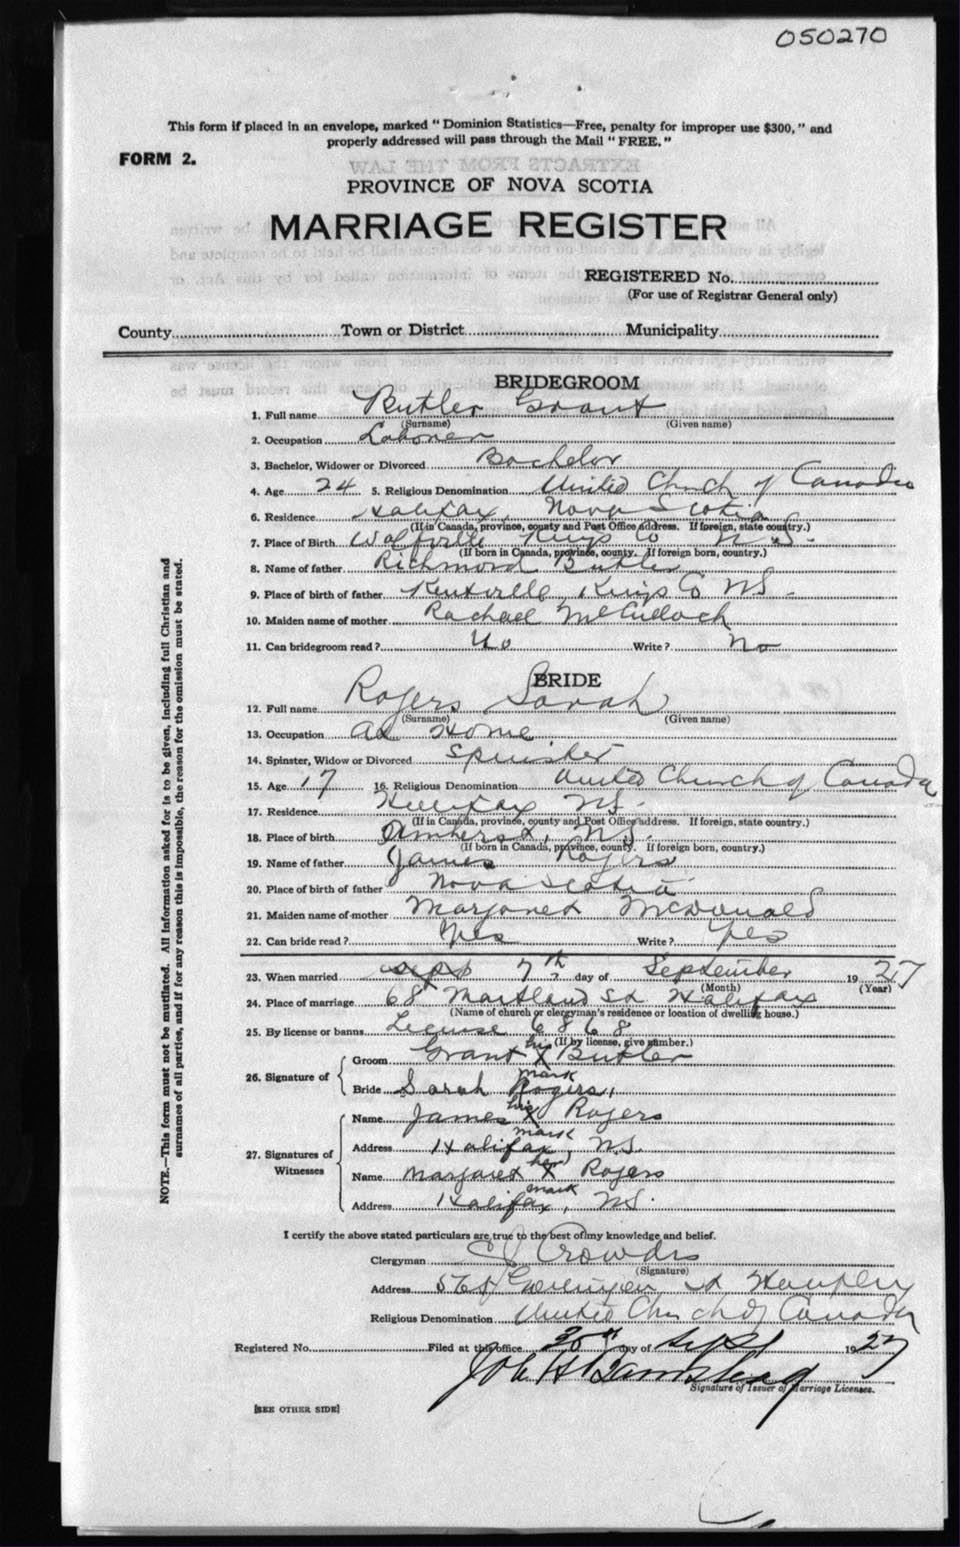 050270
This form if placed in an envelope, marked " Dominion Statistics—Free, penalty for improper use $300, " and
properly addressed will pass through the Mail " FREE. "
FORM 2.
EXTRACTS FROM THE LAW
PROVINCE OF NOVA SCOTIA
MARRIAGE REGISTER
REGISTERED No.
(For use of Registrar General only)
County Town or District Municipality
BRIDEGROOM
1. Full name Butler Grant
(Surname) (Given name)
2. Occupation Laborer
3. Bachelor, Widower or Divorced Bachelor
4. Age 24 5. Religious Denomination United Church of Canada
6. Residence Halifax, Nova Scotia
(If in Canada, province, county and Post Office address. If foreign, state country.)
7. Place of Birth Wolfville Kings Co N.S.
(If born in Canada, province, county. If foreign born, country.)
8. Name of father Richmond Butler
9. Place of birth of father Kentville, Kings Co NS.
10. Maiden name of mother Rachael McCulloch
11. Can bridegroom read? No Write? No
BRIDE
12. Full name Rogers Sarah
(Surname) (Given name)
13. Occupation at Home
14. Spinster, Widow or Divorced Spinster
15. Age 17 16. Religious Denomination United Church of Canada
17. Residence Halifax NS.
(If in Canada, province, county and Post Office address. If foreign, state country.)
18. Place of birth Amherst, NS.
(If born in Canada, province, county. If foreign born, country.)
19. Name of father James Rogers
20. Place of birth of father Nova Scotia
21. Maiden name of mother Margaret McDonald
22. Can bride read? Yes Write? Yes
23. When married 7th day of September 1927
(Month) (Year)
24. Place of marriage 68 Maitland St Halifax
(Name of church or clergyman's residence or location of dwelling house.)
25. By license or banns License 6868
(If by license, give number.)
26. Signature of
Groom Grant his X mark Butler
Bride Sarah Rogers
27. Signatures of Witnesses
Name James his X mark Rogers
Address Halifax, N.S.
Name Margaret her X mark Rogers
Address Halifax, NS.
I certify the above stated particulars are true to the best of my knowledge and belief.
Clergyman Crowdis
(Signature)
Address
Religious Denomination United Church of Canada
Registered No. Filed at this office 30th day of Sept 1927
Signature of Issuer of Marriage Licenses.
[SEE OTHER SIDE]
NOTE.—This form must not be mutilated. All information asked for is to be given, including full Christian and
surnames of all parties, and if for any reason this is impossible, the reason for the omission must be stated.